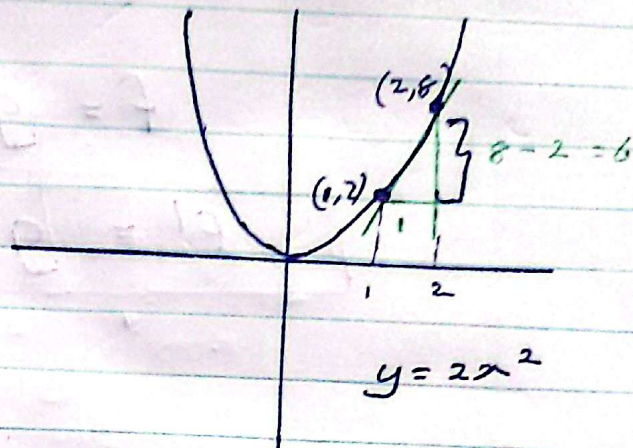 (2,8)
8 - 2 = 6
(1,2)
1
1 2
y = 2x²